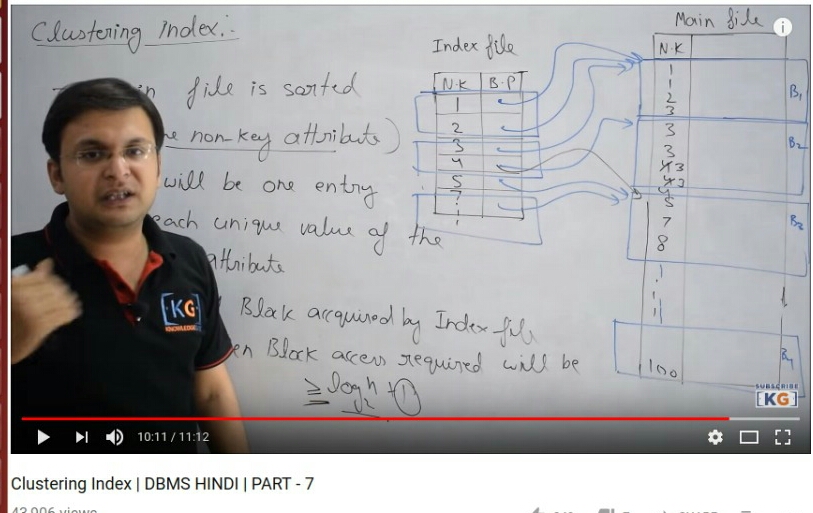 Clustering Index :-
file is sorted
non-key attribute )
will be one entry
each unique value of the
attribute
Block acquired by Index file
Block access required will be
≥ log₂n + 1
Index file
N.K B.P
1
2
3
4
5
7
Main file
N.K
1
1
2
3
B1
3
3
3
B2
5
7
8
100
[KG]
KNOWLEDGE
SUBSCRIBE
[KG]
10:11 / 11:12
Clustering Index | DBMS HINDI | PART - 7